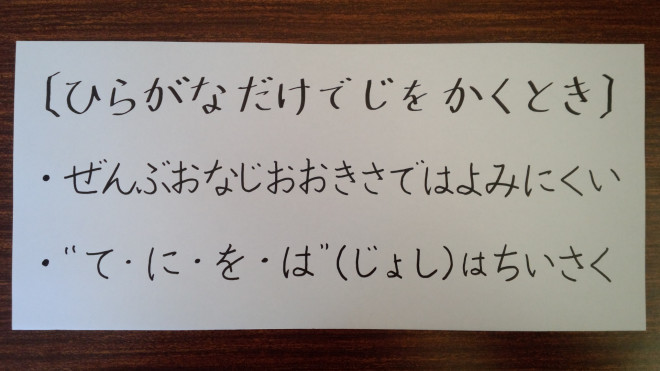 〔ひらがなだけでじをかくとき〕
・ぜんぶおなじおおきさではよみにくい
・“て・に・を・は”(じょし)はちいさく